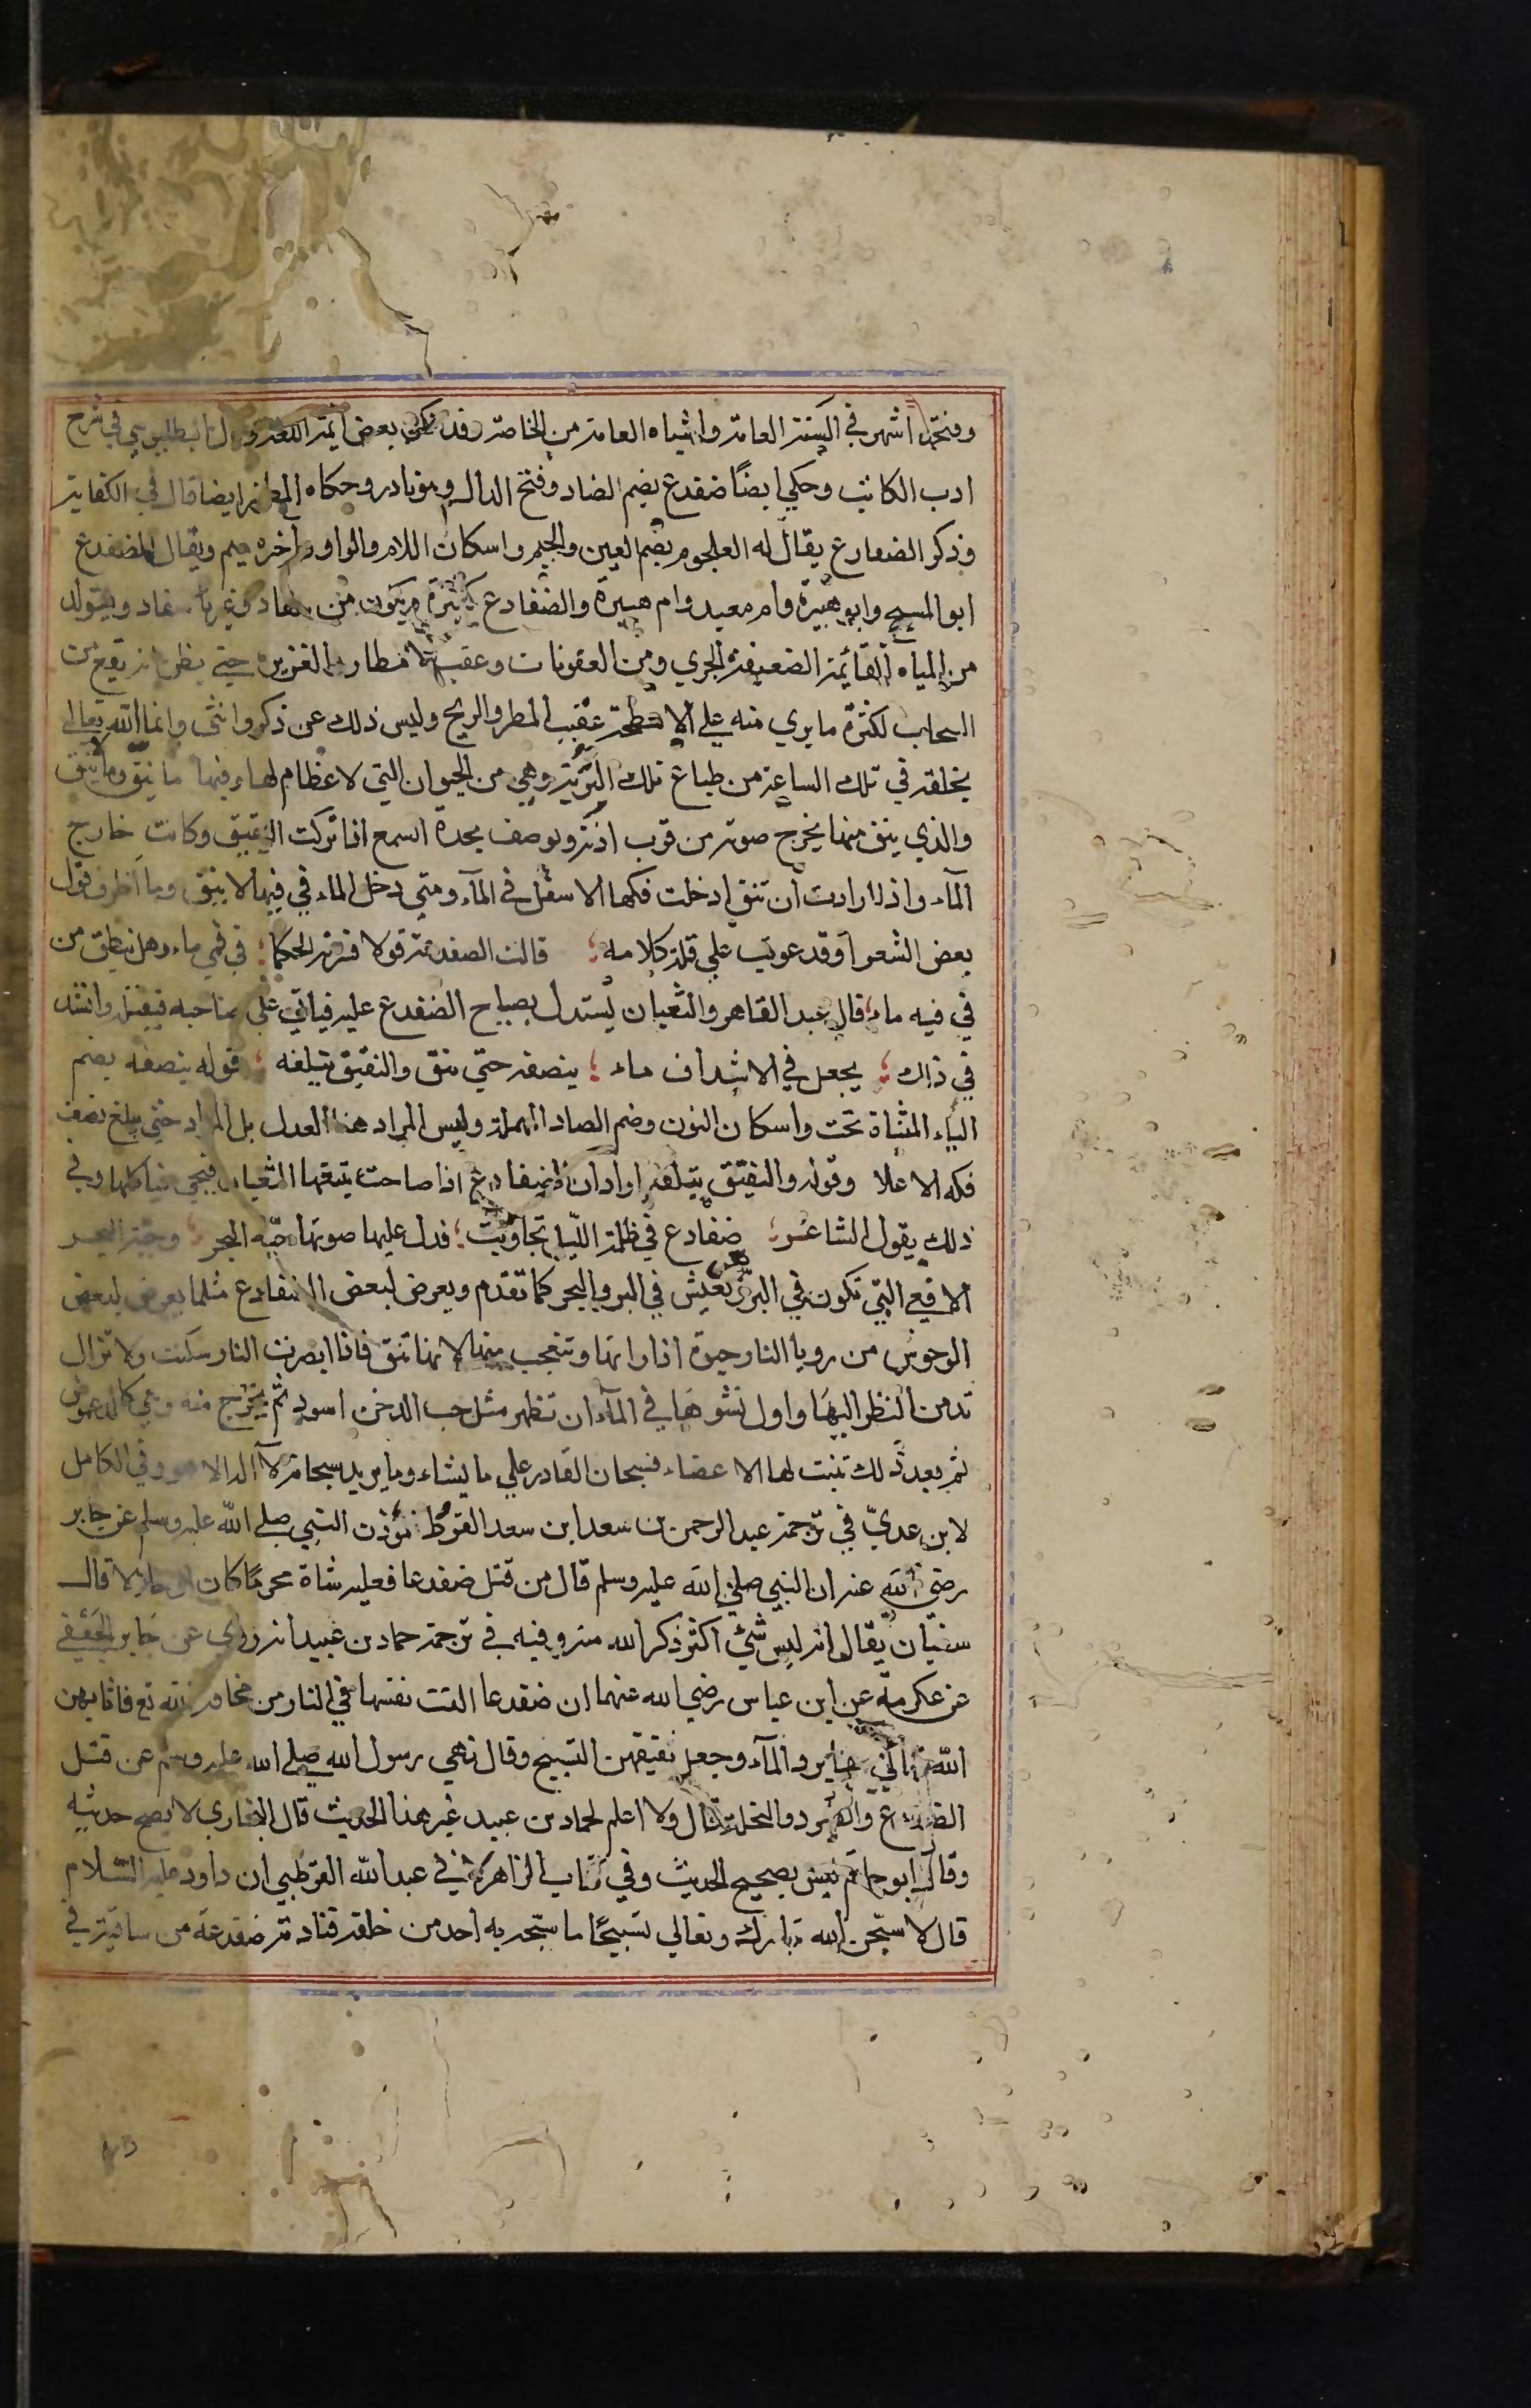 وفتحها اشهر في السنة العامة واشباه العامة من الخاصة وقد بعض ائمة اللغة وقال البطليوسي في شرح
ادب الكاتب وحكي ايضًا ضفدع بضم الضاد وفتح الدال وهو نادر وحكاه المطرز ايضا قال في الكفاية
وذكر الضفادع يقال له العلجوم بضم العين والجيم واسكان اللام والواو واخره ميم ويقال للضفدع
ابو المسيح وابو هبيرة وام معبد وام هبيرة والضفادع كثيرة ويكون من سفاد وغير سفاد ويتولد
من المياه القائمة الضعيفة الجري ومن العفونات وعقب الامطار الغزيرة حتي يظن انه يقع من
السحاب لكثرة ما يري منه علي الاسطحة عقيب المطر والريح وليس ذلك عن ذكر وانثي وانما الله تعالي
يخلقه في تلك الساعة من طباع تلك التربة وهي من الحيوان التي لا عظام لها وفيها ما ينق وما لا ينق
والذي ينق منها يخرج صوته من قرب اذنه ويوصف بحدة السمع اذا تركت النقيق وكانت خارج
المآء واذا ارادت ان تنق ادخلت فكها الاسفل في المآء ومتي دخل الماء في فيها لا ينق وما اظرف قول
بعض الشعرا وقد عوتب علي قلة كلامه ؛ قالت الضفدعة قولا فسرته الحكما ؛ في فمي ماء وهل ينطق من
في فيه ماء ؛ قال عبد القاهر والثعبان يستدل بصياح الضفدع عليه فياتي علي صاحبه فيقتله وانشد
في ذلك ؛ يجعل في الاشداف ماء ؛ ينصفه حتي ينق والنقيق يتلفه ؛ قوله ينصفه بضم
الياء المثناة تحت واسكان النون وضم الصاد المهملة وليس المراد هنا العدل بل المراد حتي يبلغ نصف
فكه الاعلا وقوله والنقيق يتلفه اراد ان الضفادع اذا صاحت يتبعها الثعبان فيجي فياكلها وفي
ذلك يقول الشاعر ؛ ضفادع في ظلمة الليل تجاوبت ؛ فدل عليها صوتها حيّة البحر ؛ وحية البحر
الافعي التي تكون في البر تعيش في البر والبحر كما تقدم ويعرض لبعض الضفادع مثلما يعرض لبعض
الوحوش من رويا النار حيرة اذا راتها وتتعجب منها لانها تنق فاذا ابصرت النار سكتت ولا تزال
تدمن النظر اليها واول نشوها في المآء ان تظهر مثل حب الدخن اسود ثم يخرج منه وهي كالدعموص
ثم بعد ذلك تنبت لها الاعضاء فسبحان القادر علي ما يشاء وما يريد سبحانه لا اله الا هو وفي الكامل
لابن عديّ في ترجمة عبد الرحمن بن سعد ابن سعد القرظ مؤذن النبي صلي الله عليه وسلم عن جابر
رضي الله عنه ان النبي صلي الله عليه وسلم قال من قتل ضفدعا فعليه شاة محرمًا كان او حلالا قال
سفيان يقال انه ليس شئ اكثر ذكر الله منه وفيه في ترجمة حماد بن عبيد انه روي عن جابر الجعفي
عن عكرمة عن ابن عباس رضي الله عنهما ان ضفدعا القت نفسها في النار من مخافة الله تع فاثابهن
الله تعالي برد المآء وجعل نقيقهن التسبيح وقال نهي رسول الله صلي الله عليه وسلم عن قتل
الضفدع والصرد والنحلة قال ولا اعلم لحماد بن عبيد غير هذا الحديث قال البخاري لا يصح حديثه
وقال ابو حاتم ليس بصحيح الحديث وفي كتاب الزاهر لابي عبد الله القرطبي ان داود عليه السّلام
قال لاسبّحن الله تبارك وتعالي تسبيحًا ما سبّحه به احد من خلقه فنادته ضفدعة من ساقية في